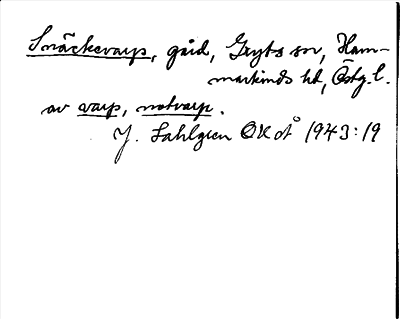 Snäckevarp, gård, Gryts sn, Ham-
markinds hd, Östg. l.
av varp, notvarp.
J. Sahlgren OUoÅ 1943:19